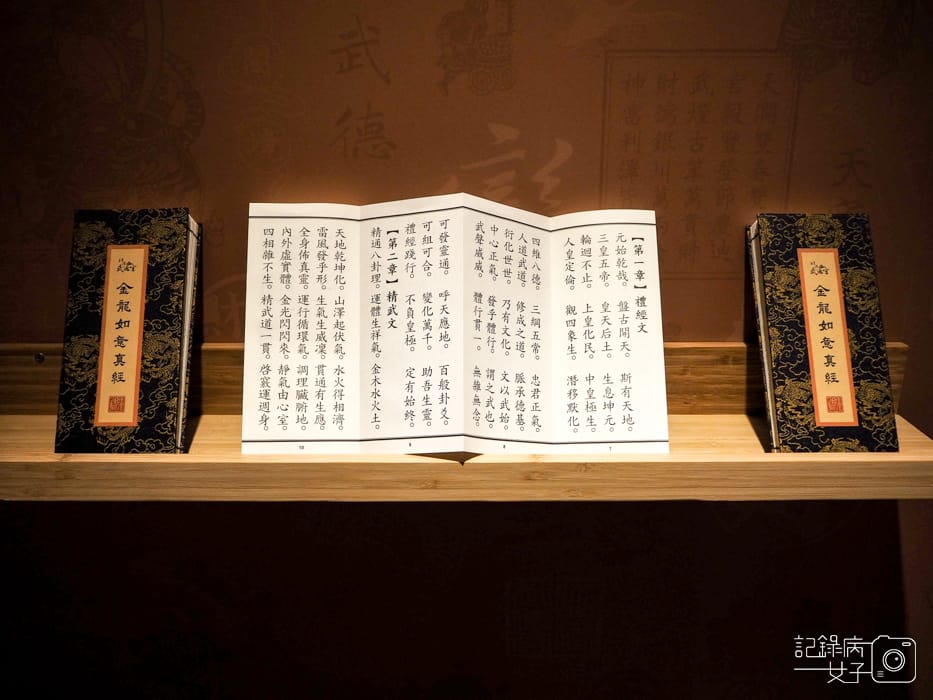 武德
【第一章】禮經文
元始乾哉。盤古開天。斯有天地。
三皇五帝。皇天后土。生息坤元。
輪迴不止。上皇化民。中皇極生。
人皇定倫。觀四象生。潛移默化。
7
四維八德。三綱五常。忠君正氣。
人道武道。修成之道。脈承德基。
衍化世世。乃有文化。文以武始。
中心正氣。發乎體行。謂之武也。
武聲威威。體行貫一。無雜無念。
8
可發靈通。呼天應地。百般卦爻。
可組可合。變化萬千。助吾生靈。
禮經踐行。不負皇極。定有始終。
【第二章】精武文
精通八卦理。運體生祥氣。金木水火土。
9
天地乾坤化。山澤起伏氣。水火得相濟。
雷風發乎形。生氣生威凜。貫通有生應。
全身佈真靈。運行循環氣。調理臟腑地。
內外虛實體。金光閃閃來。靜氣由心室。
四相雜不生。精武道一貫。啓竅運週身。
10
金龍如意真經
金龍如意真經
記錄病
女子